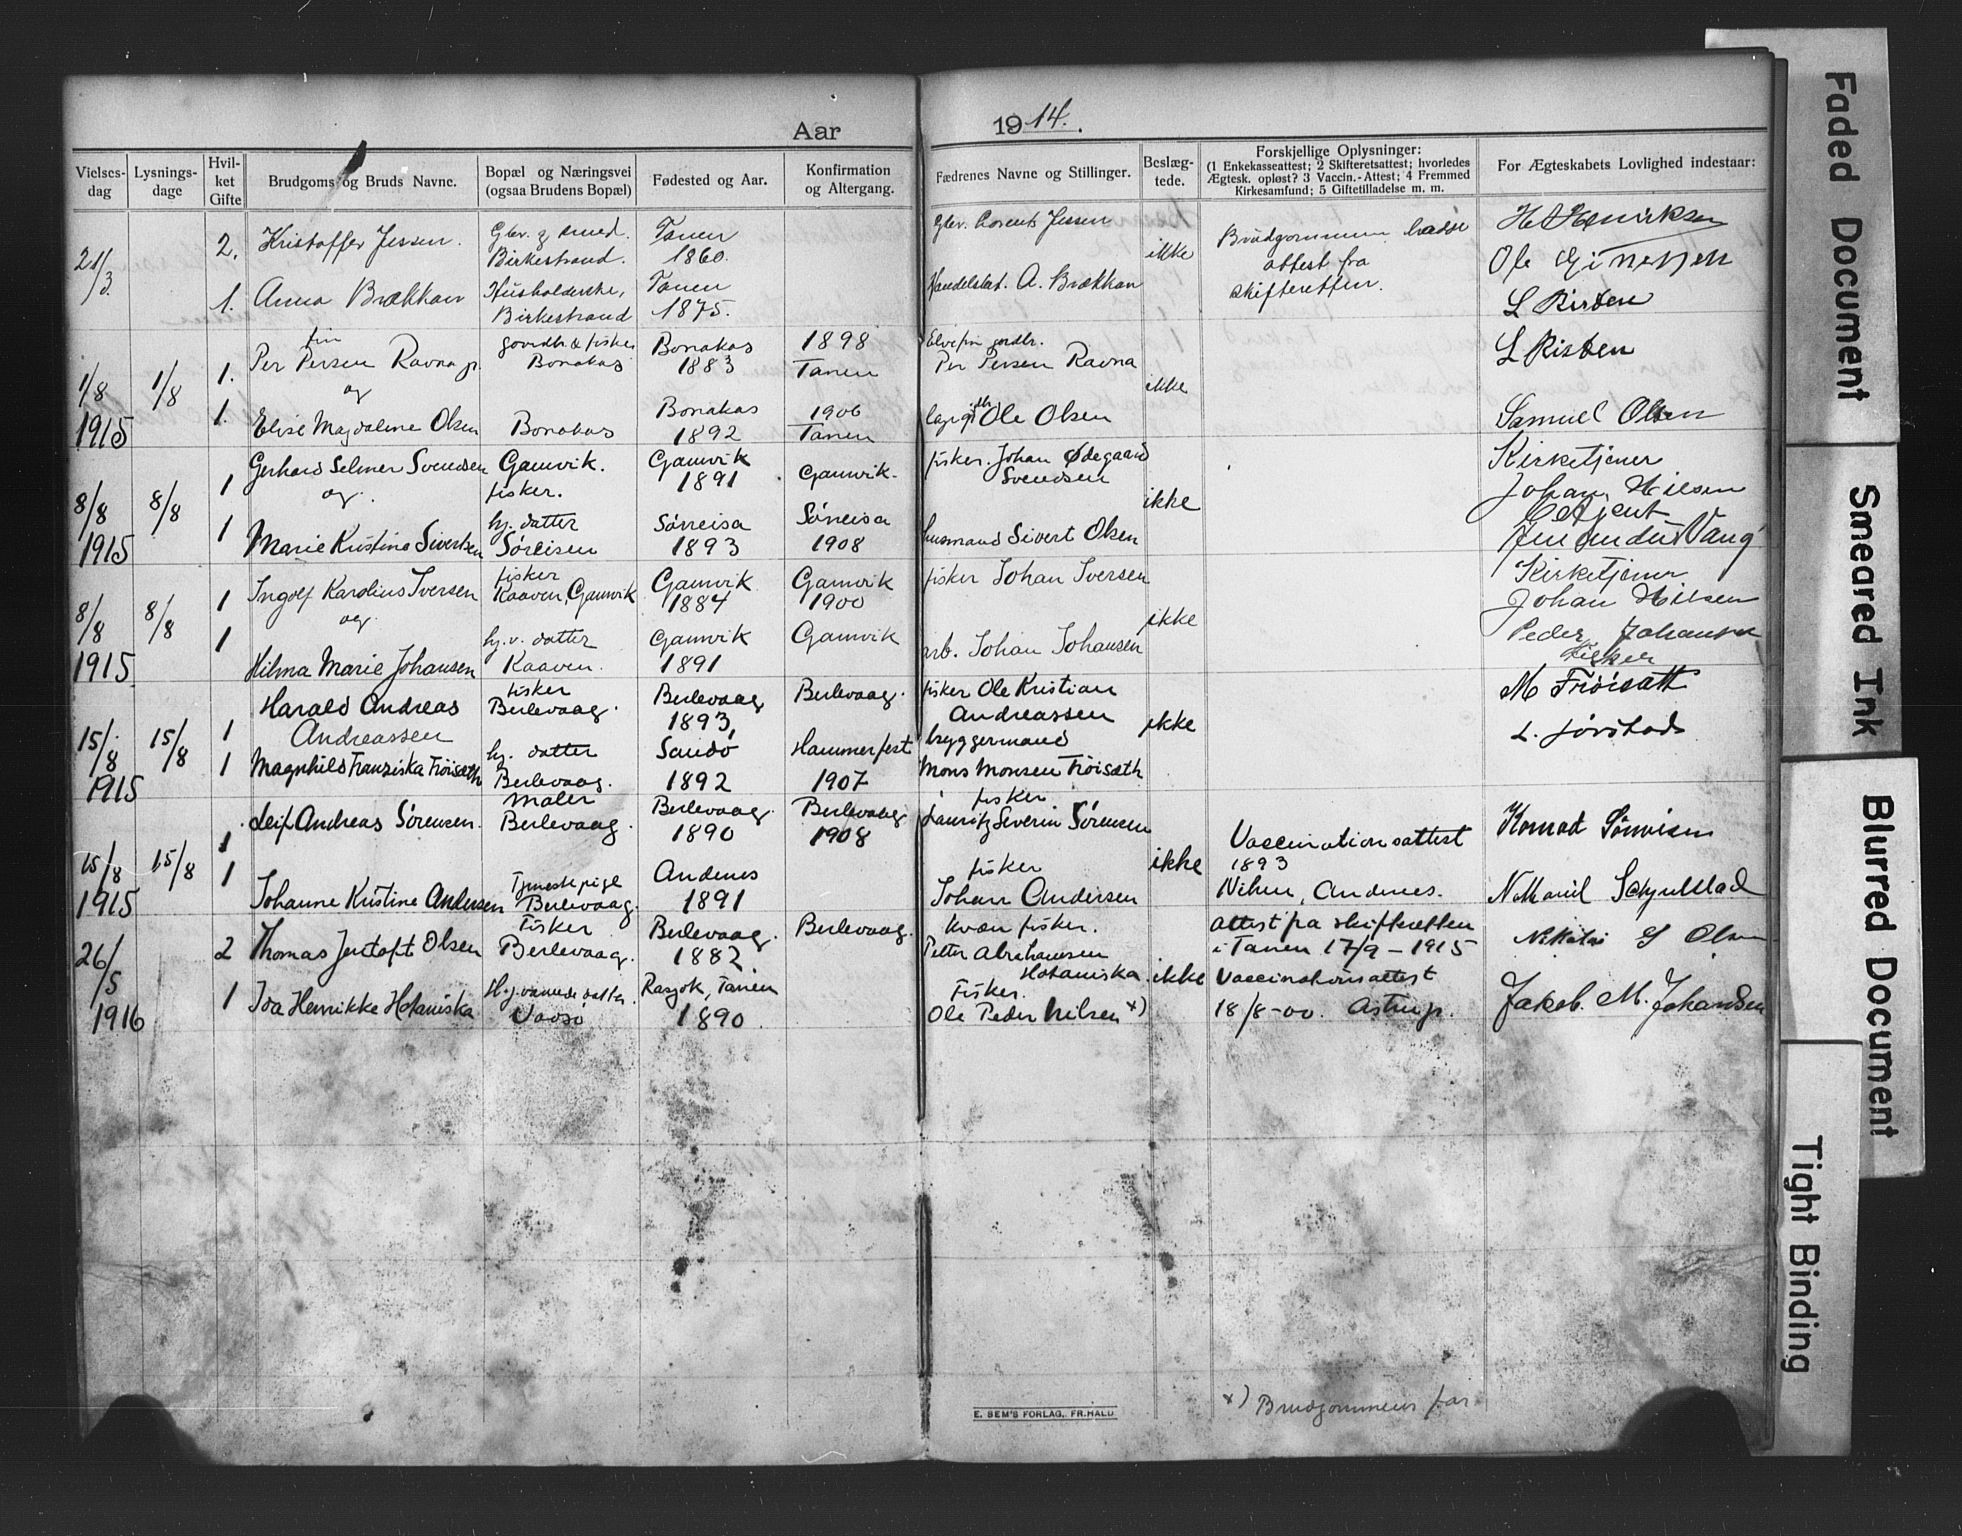 Aar 1914.
Vielses-dag
Lysnings-dage
Hvil-ket Gifte
Brudgoms og Bruds Navne.
Bopæl og Næringsvei (ogsaa Brudens Bopæl)
Fødested og Aar.
Konfirmation og Altergang.
Fædrenes Navne og Stillinger.
Beslæg-tede.
Forskjellige Oplysninger:
(1 Enkekasseattest; 2 Skifteretsattest; hvorledes
Ægtesk. opløst? 3 Vaccin.-Attest; 4 Fremmed
Kirkesamfund; 5 Giftetilladelse m. m.
For Ægteskabets Lovlighed indestaar:
21/3
2. Kristoffer Jessen.
Gbr. & smed.
Birkestrand.
Tanen
1860.
Gbr. Lorents Jessen
ikke
Brudgommen hadde
attest fra
skifteretten.
H Henriksen
Ole
1. Anna Brækkan
Husholderske,
Birkestrand
Tanen
1875.
Handelsbet. A. Brækkan
L Risten
1/8
1915
1/8
1. fin
Per Persen Ravna jr
og
gaardbr & fisker
Bonakas
Bonakas
1883
1898
Tanen
Elvefin gardbr.
Per Persen Ravna
ikke
L Risten
1. Elise Magdalene Olsen
Bonakas
Bonakas
1892
1906
Tanen
Ole Olsen
Samuel Olsen
8/8
1915
8/8
1 Gerhard Selmer Svendsen
og.
Gamvik.
fisker.
Gamvik
1891
Gamvik.
fisker. Johan Ødegaard
Svendsen
ikke
Kirketjener
Johan Nilsen
Betjent
Vang
1 Marie Kristine Sivertsen
hj. datter
Sørreisen
Sørreisa
1893
Sørreisa
1908
husmand Sivert Olsen
8/8
1915
8/8
1 Ingolf Karolius Iversen
og.
fisker
Kaaven, Gamvik
Gamvik
1884
Gamvik
1900
fisker Johan Iversen
ikke
Kirketjener
Johan Nilsen
1 Hilma Marie Johansen
hj. v. datter
Kaaven.
Gamvik
1891
Gamvik
arb. Johan Johansen
Peder Johansen
fisker
15/8
1915
15/8
1 Harald Andreas
Andreassen
fisker
Berlevaag.
Berlevaag
1893,
Berlevaag.
fisker Ole Kristian
Andreassen
ikke
M Frøisæth
L. Jørstad
1 Magnhild Franziska Frøisæth
hj. datter
Berlevaag.
Sandø
1892
Hammerfest
1907
bryggermand
Mons Monsen Frøisæth
15/8
1915
15/8
1 Leif Andreas Sørensen.
maler
Berlevaag.
Berlevaag.
1890
Berlevaag
1908
fisker.
Lauritz Severin Sørensen
ikke
Vaccinationsattest
1893
Konrad
1 Johanne Kristine Andersen
Tjenestepige
Berlevaag.
Andenes
1891
fisker
Johan Andersen
Andenes.
26/5
1916
2 Thomas Jentoft Olsen
Fisker
Berlevaag.
Berlevaag.
1882
Berlevaag.
kvæn fisker.
Petter Abrahamsen
Hotaniska
ikke
attest fra skifteretten
i Tanen 17/9 - 1915
Nikolai Olsen
1 Ida Henrikke Hotaniska
Hj.værende datter.
Vadsø
Rasjok, Tanen
1890.
Fisker.
Ole Peder Nilsen x)
Vaccinationsattest
18/8-00. Astrup.
Jakob. M. Johansen
x) Brudgommens far
E. SEM'S FORLAG, FR.HALD
Faded Document
Smeared Ink
Blurred Document
Tight Binding